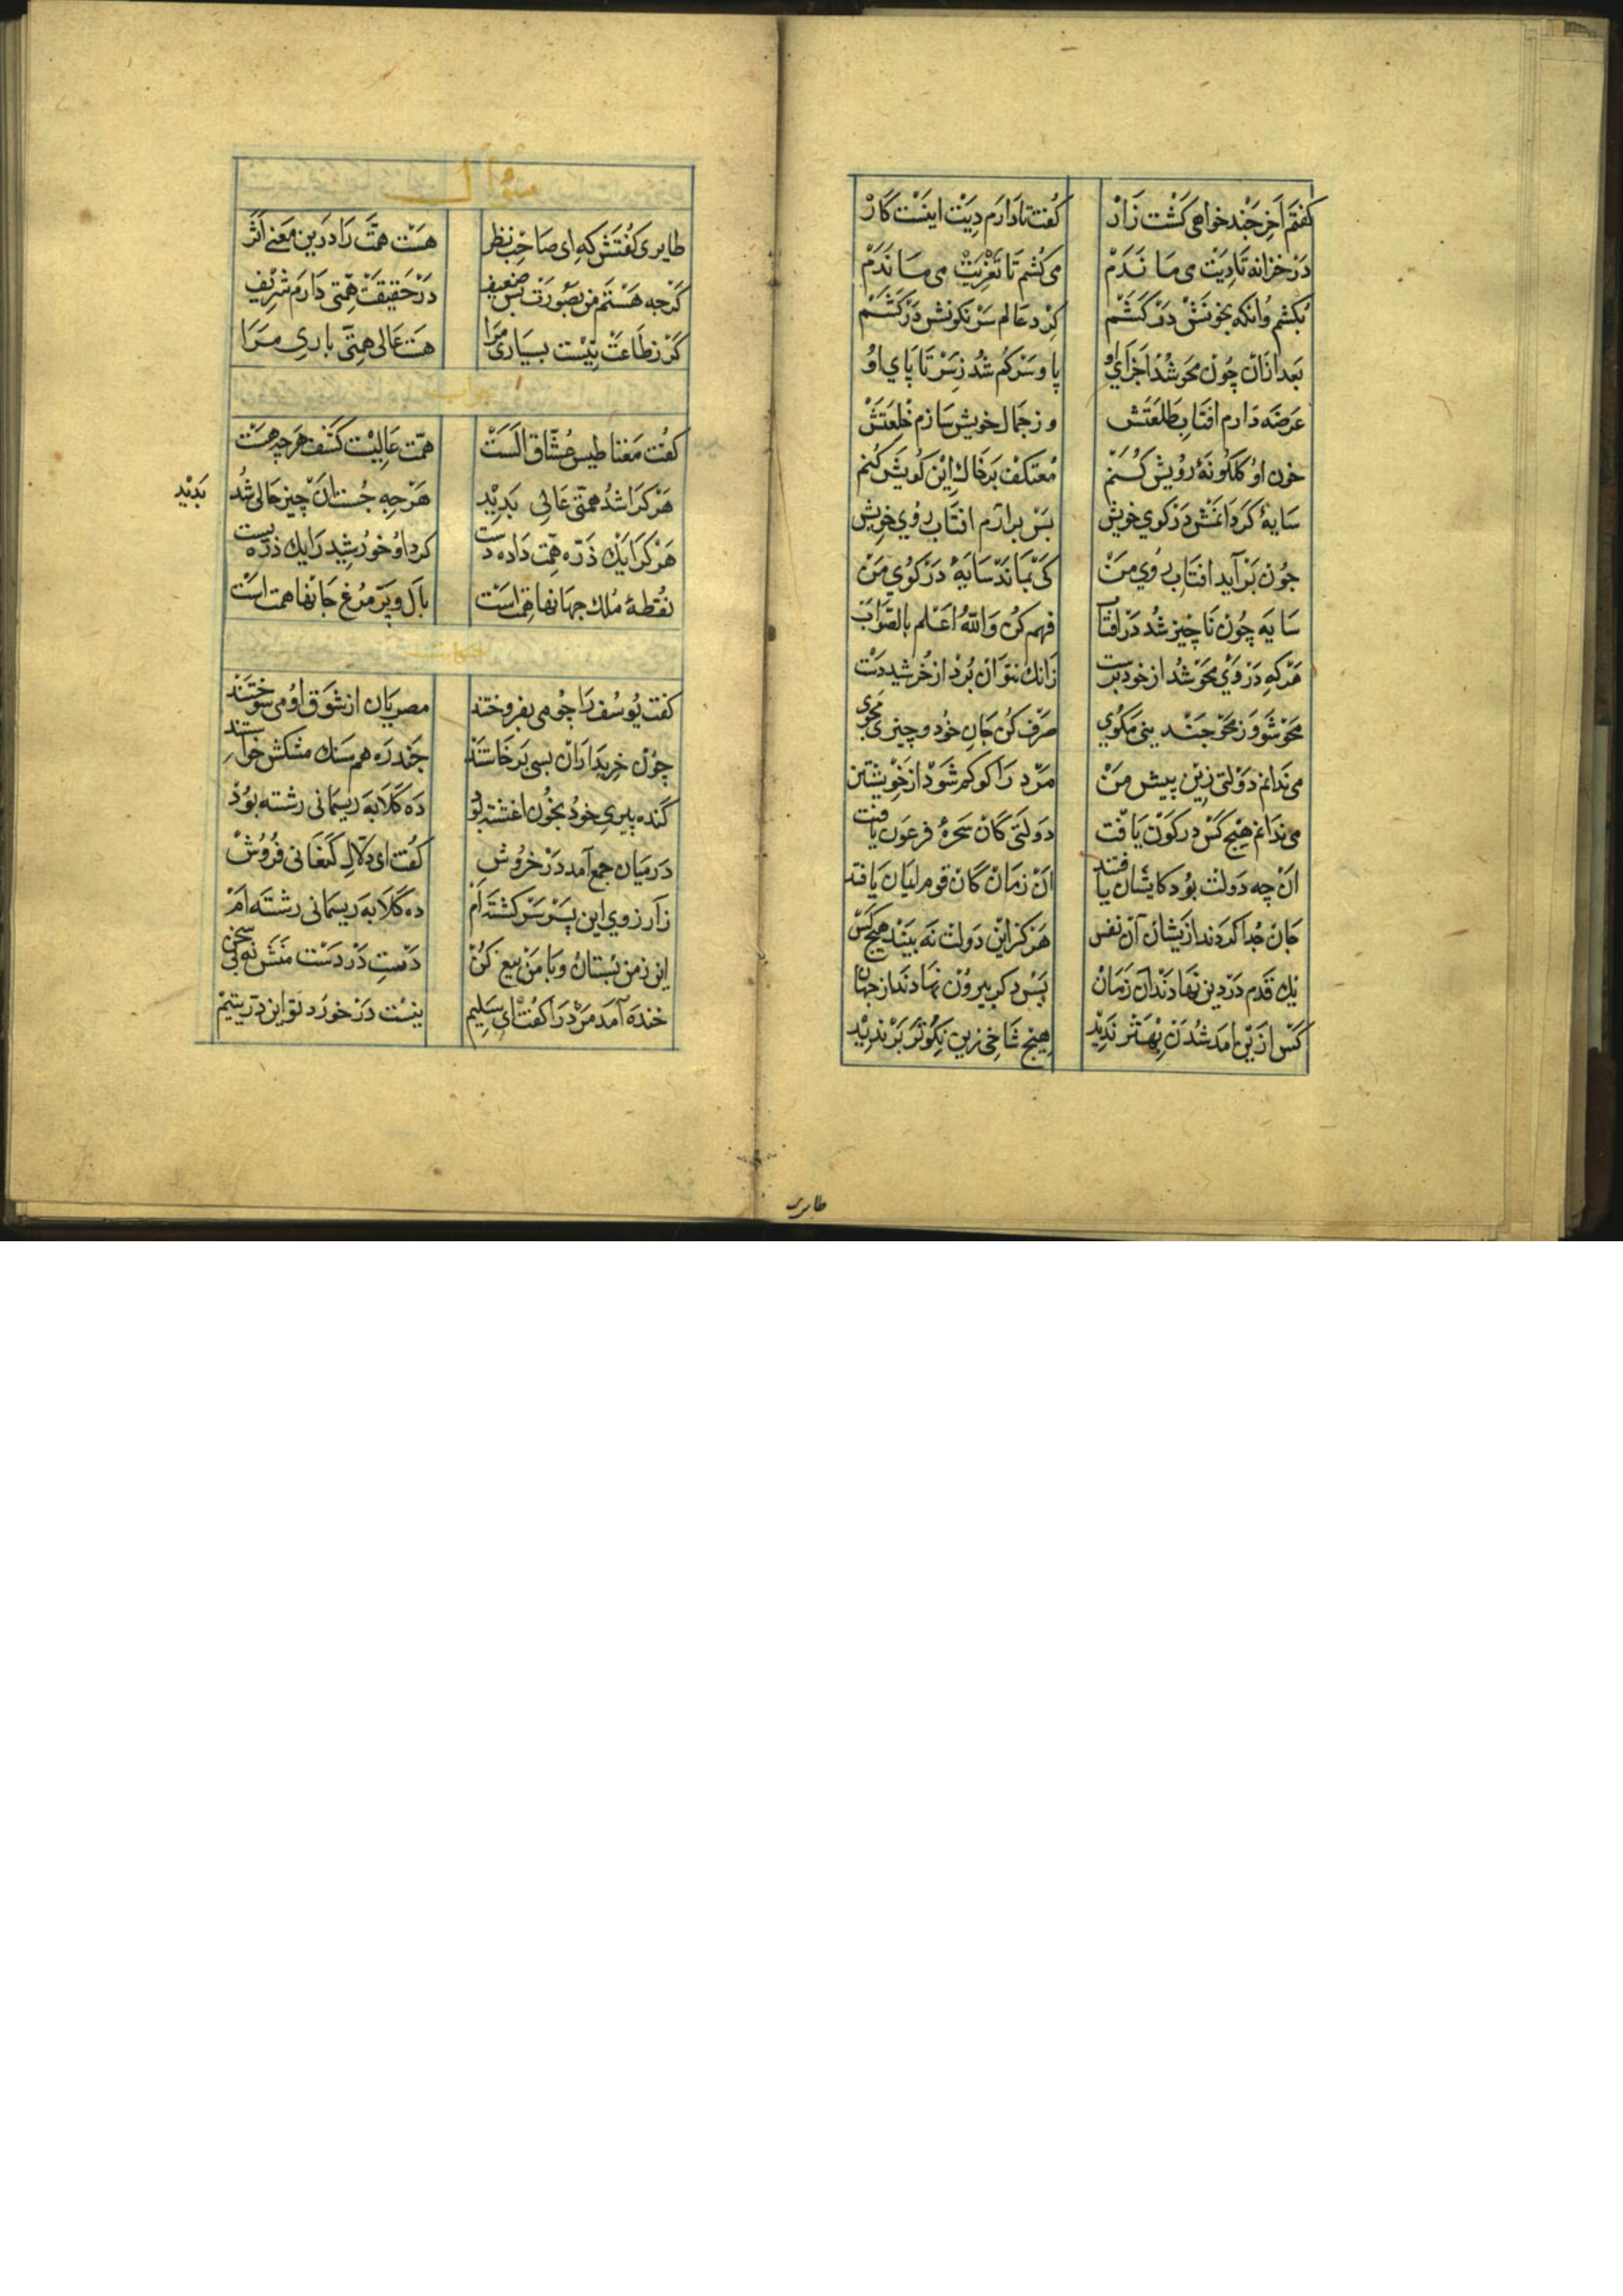 گفتم آخر چند خواهی کشت زار گفت تا دارم دیت اینست کار
در خزانه تا دیت می ماندم می کشم تا تعزیت می ماندم
بکشم وانکه بخونش در کشم گرد عالم سرنکونش در کشم
بعد ازان چون محو شد اجزای او پا و سر کم شد ز سر تا پای او
عرضه دارم افتاب طلعتش وز جمال خویش سازم خلعتش
خون او گلگونهٔ رویش کنم معتکف بر خاک این کویش کنم
سایهٔ گردانمش در کوی خویش بس برارم افتاب روی خویش
چون برآید افتاب روی من کی بماند سایهٔ در کوی من
سایه چون ناچیز شد در افتاب فهم کن والله اعلم بالصواب
هرکه در وی محو شد از خود برست زانک نتوان برد از خرشید دست
محو شو وز محو چندینی مکوی صرف کن جان خود و چیزی مجوی
می ندانم دولتی زین بیش من مرد را کو کم شود از خویشتن
می ندانم هیچ کس در کون یافت دولتی کان سحرهٔ فرعون یافت
ان چه دولت بود کایشان یافتند ان زمان کان قوم ایمان یافتند
جان جدا کردند ازیشان آن نفس هرکز این دولت نه بیند هیچ کس
یک قدم در دین نهادند آن زمان پس دکر بیرون نهادند از جهان
کس ازین امد شدن بهتر ندید هیچ شاخی زین نکوتر بر ندید
طایری
سؤال
طایری گفتش که ای صاحب نظر هست همت را درین معنی اثر
کرچه هستم من بصورت بس ضعیف در حقیقت همتی دارم شریف
کر ز طاعت نیست بسیاری مرا هست عالی همتی باری مرا
جواب
گفت مغناطیس عشاق الست همت عالیست کشف هرچه هست
هرکرا شد همتی عالی بدید هرچه جست آن چیز حالی شد بدید
هرکرا یک ذره همت داد دست کرد او خورشید را یک ذره پست
نقطهٔ ملک جهانها همت است بال و پر مرغ جانها همت است
حکایت
گفت یوسف را چو می بفروختند مصریان از شوق او می سوختند
چون خریداران بسی برخاستند چند ره هم سنک مشکش خواستند
کنده پیری خود بخون اغشته بود ده کلابه ریسمانی رشته بود
درمیان جمع آمد در خروش گفت ای دلال کنعانی فروش
زآرزوی این پسر سرکشته ام ده کلابه ریسمانی رشته ام
این ز من بستان و با من بیع کن دست در دست منش نه بی سخن
خنده آمد مرد را گفت ای سلیم نیست در خورد تو این در یتیم